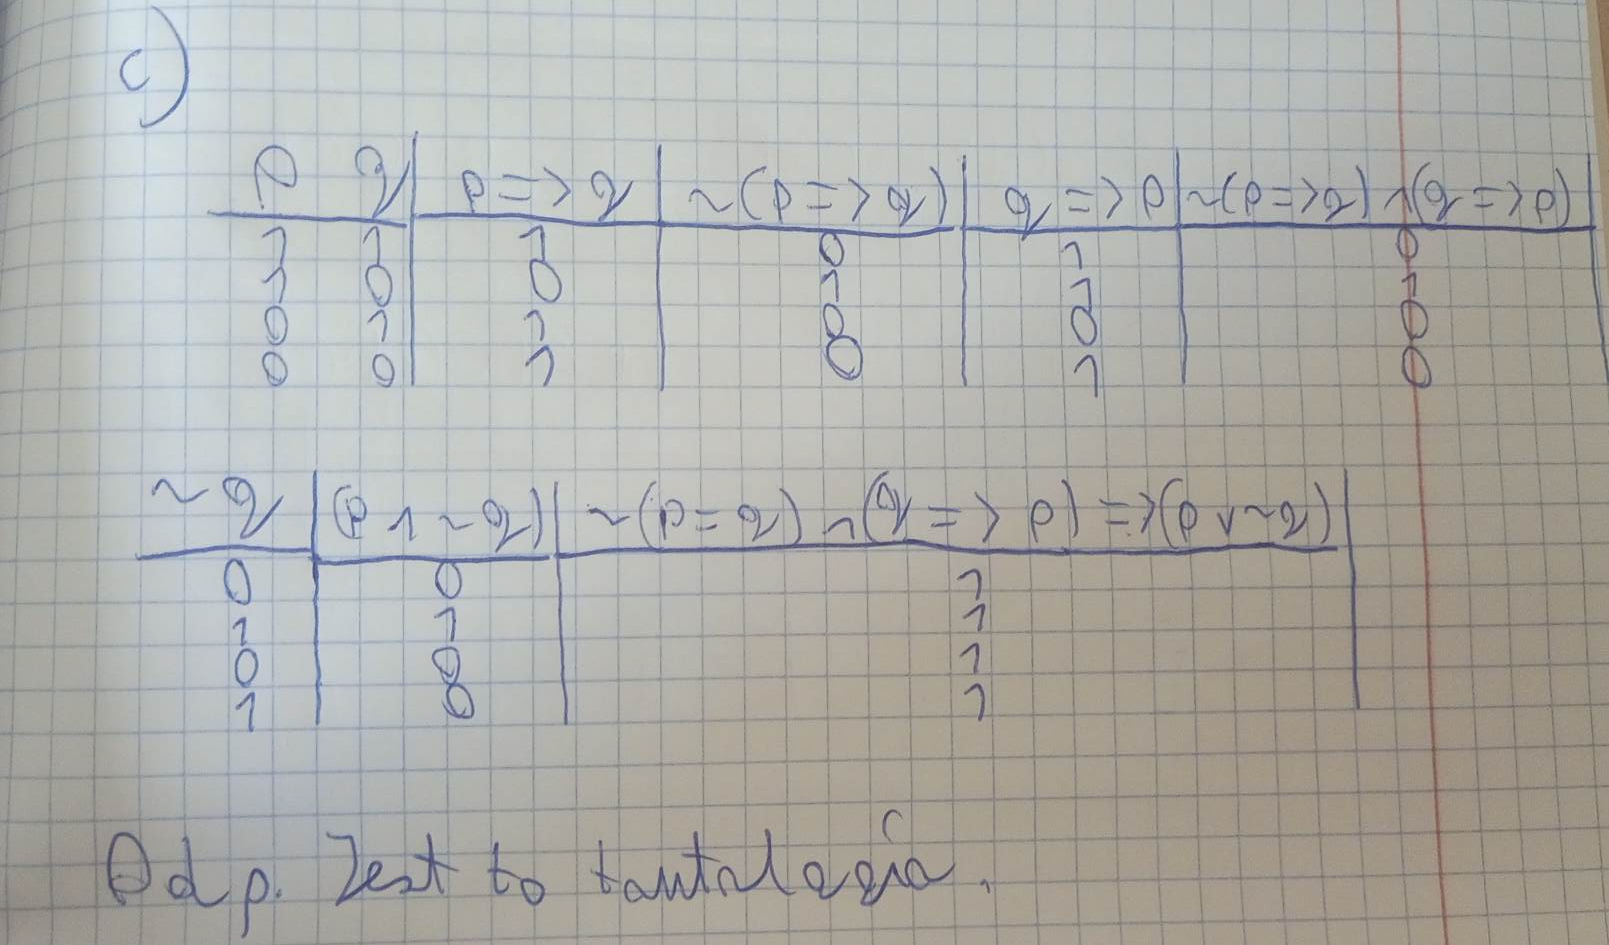 c)
p q | p => q | ~(p => q) | q => p | ~(p => q) ∧ (q => p)
1 1 | 1 | 0 | 1 | 0
1 0 | 0 | 1 | 1 | 1
0 1 | 1 | 0 | 0 | 0
0 0 | 1 | 0 | 1 | 0
~q | (p ∧ ~q) | ~(p = q) ∧ (q => p) => (p ∨ ~q)
0 | 0 | 1
1 | 1 | 1
0 | 0 | 1
1 | 0 | 1
Odp. Jest to tautologia.